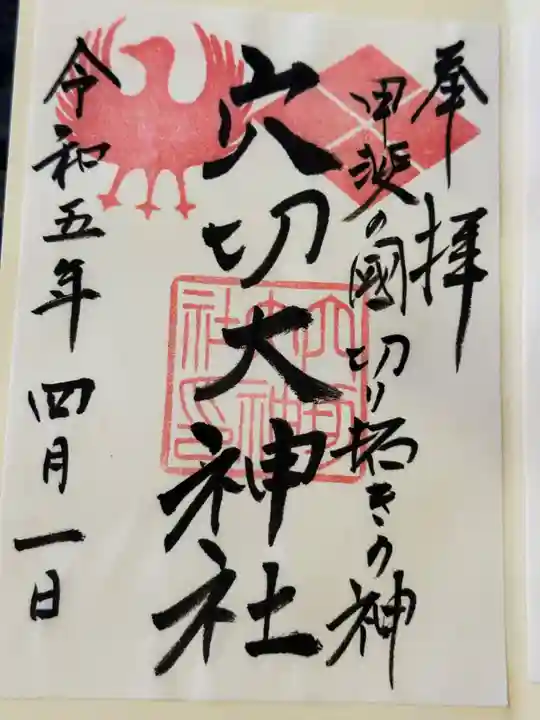 奉拝
甲斐の國切り拓きの神
穴切大神社
穴切大神社印
令和五年四月一日